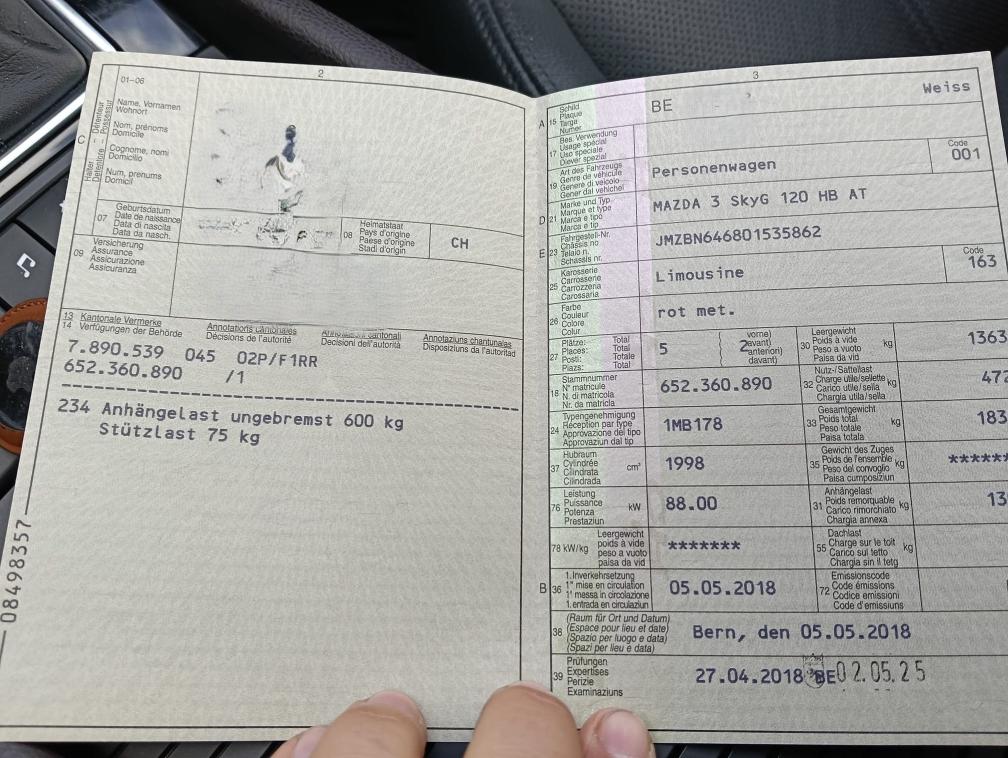 2
01–06
C
Halter Détenteur
Detentore Possessur
Name, Vornamen
Wohnort
Nom, prénoms
Domicile
Cognome, nomi
Domicilio
Num, prenums
Domicil
07
Geburtsdatum
Date de naissance
Data di nascita
Data da nasch.
08
Heimatstaat
Pays d'origine
Paese d'origine
Stadi d'origin
CH
09
Versicherung
Assurance
Assicurazione
Assicuranza
13 Kantonale Vermerke Annotations cantonales Annotazioni cantonali Annotaziuns chantunalas
14 Verfügungen der Behörde Décisions de l'autorité Decisioni dell'autorità Disposiziuns da l'autoritad
7.890.539 045 02P/F1RR
652.360.890 /1
234 Anhängelast ungebremst 600 kg
Stützlast 75 kg
08498357
3
A 15
Schild
Plaque
Targa
Numer
BE
Weiss
17
Bes. Verwendung
Usage spécial
Uso speciale
Diever spezial
19
Art des Fahrzeugs
Genre de véhicule
Genere di veicolo
Gener dal vehichel
Personenwagen
Code
001
D 21
Marke und Typ
Marque et type
Marca e tipo
Marca e tip
MAZDA 3 SkyG 120 HB AT
E 23
Fahrgestell-Nr.
Châssis no
Telaio n.
Schassis nr.
JMZBN646801535862
25
Karosserie
Carrosserie
Carrozzeria
Carossaria
Limousine
Code
163
26
Farbe
Couleur
Colore
Colur
rot met.
27
Plätze: Total
Places: Total
Posti: Totale
Plazs: Total
5
2
vorne)
avant)
anteriori)
davant)
30
Leergewicht
Poids à vide
Peso a vuoto
Paisa da vid
kg
1363
18
Stammnummer
N° matricule
N. di matricola
Nr. da matricla
652.360.890
32
Nutz-/Sattellast
Charge utile/sellette
Carico utile/sella
Chargia utila/sella
kg
472
24
Typengenehmigung
Réception par type
Approvazione del tipo
Approvaziun dal tip
1MB178
33
Gesamtgewicht
Poids total
Peso totale
Paisa totala
kg
183
37
Hubraum
Cylindrée
Cilindrata
Cilindrada
cm³
1998
35
Gewicht des Zuges
Poids de l'ensemble
Peso del convoglio
Paisa cumposiziun
kg
******
76
Leistung
Puissance
Potenza
Prestaziun
kW
88.00
31
Anhängelast
Poids remorquable
Carico rimorchiato
Chargia annexa
kg
13
78 kW/kg
Leergewicht
poids à vide
peso a vuoto
paisa da vid
*******
55
Dachlast
Charge sur le toit
Carico sul tetto
Chargia sin il tetg
kg
B 36
1.Inverkehrsetzung
1re mise en circulation
1a messa in circolazione
1.entrada en circulaziun
05.05.2018
72
Emissionscode
Code émissions
Codice emissioni
Code d'emissiuns
38
(Raum für Ort und Datum)
(Espace pour lieu et date)
(Spazio per luogo e data)
(Spazi per lieu e data)
Bern, den 05.05.2018
39
Prüfungen
Expertises
Perizie
Examinaziuns
27.04.2018 BE 02.05.25